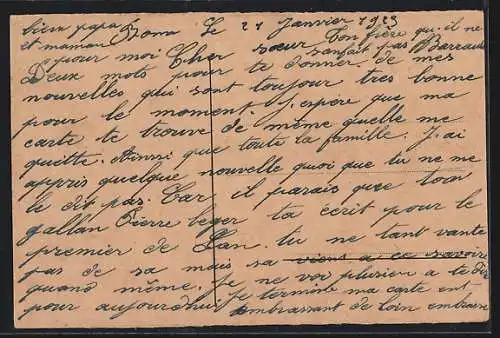 bien papa
et maman
Bona Le 21 Janvier 1923
Ton frère qui il ne
pour moi Cher sœur sanfait pas Barraud
Deux mots pour te donner de mes
nouvelles qui sont toujour tres bonne
pour le moment j'espère que ma
carte te trouve de même quelle me
quitte. Ainssi que toute la famille. J'ai
appris quelque nouvelle quoi que tu ne me
le dit pas. Car il parais que ton
gallan Pierre leger ta écrit pour le
premier de L'an. tu ne tant vante
pas de sa mais sa viens a ce savoire
quand même. Je ne voi plusieur a te dir
pour aujourdhui Je termine ma carte ent
embrassant de loin embrasse